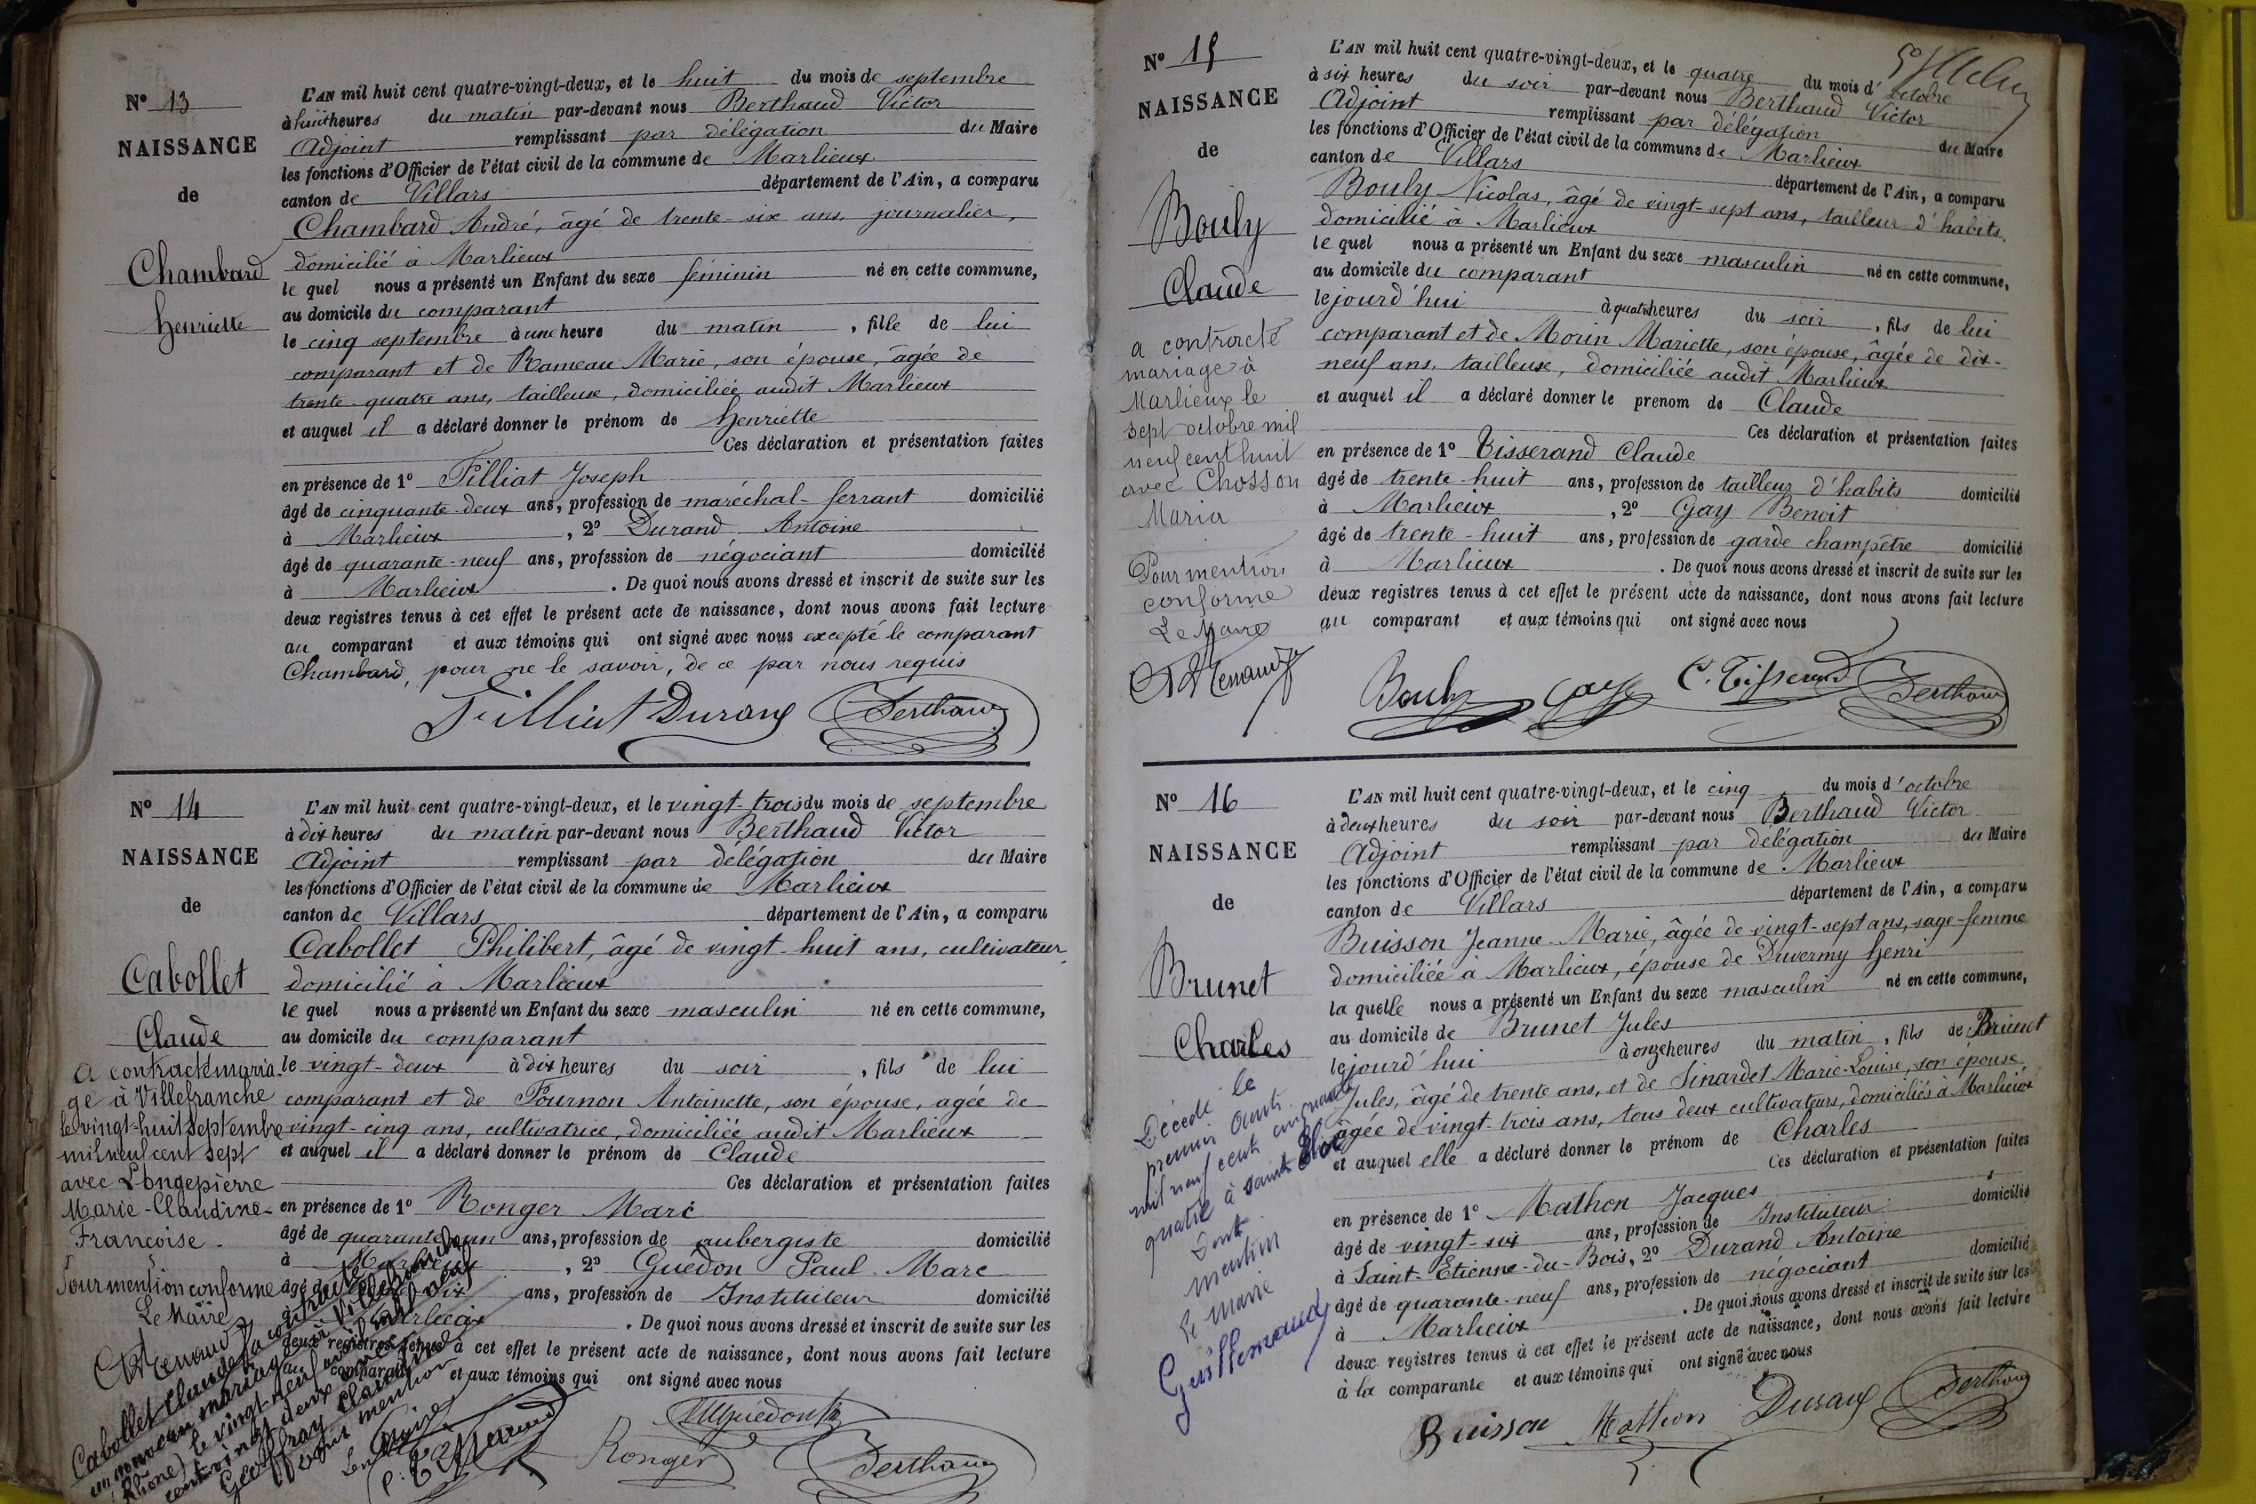 N° 13
NAISSANCE
de
Chambard
Henriette
L'AN mil huit cent quatre-vingt-deux, et le huit du mois de septembre
à huit heures du matin par-devant nous Berthaud Victor
Adjoint remplissant par délégation du Maire
les fonctions d'Officier de l'état civil de la commune de Marlieux
canton de Villars département de l'Ain, a comparu
Chambard André, âgé de trente-six ans, journalier,
domicilié à Marlieux
le quel nous a présenté un Enfant du sexe féminin né en cette commune,
au domicile du comparant
le cinq septembre à une heure du matin, fille de lui
comparant et de Rameau Marie, son épouse, âgée de
trente-quatre ans, tailleuse, domiciliée audit Marlieux
et auquel il a déclaré donner le prénom de Henriette
Ces déclaration et présentation faites
en présence de 1° Filliat Joseph
âgé de cinquante-deux ans, profession de maréchal-ferrant domicilié
à Marlieux, 2° Durand Antoine
âgé de quarante-neuf ans, profession de négociant domicilié
à Marlieux. De quoi nous avons dressé et inscrit de suite sur les
deux registres tenus à cet effet le présent acte de naissance, dont nous avons fait lecture
au comparant et aux témoins qui ont signé avec nous excepté le comparant
Chambard, pour ne le savoir, de ce par nous requis
Filliat Durand Berthaud
N° 14
NAISSANCE
de
Cabollet
Claude
A contracté maria-
ge à Villefranche
le vingt-huit septembre
mil neuf cent sept
avec Longepierre
Marie-Claudine-
Françoise.
Pour mention conforme
Le Maire
Cabollet Claude a contracté
un nouveau mariage à Villefranche
(Rhône) le vingt-neuf avril mil neuf
cent vingt deux avec
Geoffray Claudine
Dont mention
Le Maire
L'AN mil huit cent quatre-vingt-deux, et le vingt-trois du mois de septembre
à dix heures du matin par-devant nous Berthaud Victor
Adjoint remplissant par délégation du Maire
les fonctions d'Officier de l'état civil de la commune de Marlieux
canton de Villars département de l'Ain, a comparu
Cabollet Philibert, âgé de vingt-huit ans, cultivateur,
domicilié à Marlieux
le quel nous a présenté un Enfant du sexe masculin né en cette commune,
au domicile du comparant
le vingt-deux à dix heures du soir, fils de lui
comparant et de Fournon Antoinette, son épouse, agée de
vingt-cinq ans, cultivatrice, domiciliée audit Marlieux
et auquel il a déclaré donner le prénom de Claude
Ces déclaration et présentation faites
en présence de 1° Ronger Marc
âgé de quarante-un ans, profession de aubergiste domicilié
à Marlieux, 2° Guédon Paul-Marc
âgé de dix ans, profession de Instituteur domicilié
à Marlieux. De quoi nous avons dressé et inscrit de suite sur les
deux registres tenus à cet effet le présent acte de naissance, dont nous avons fait lecture
au comparant et aux témoins qui ont signé avec nous
Guédon
Ronger Berthaud
N° 15
NAISSANCE
de
Bouly
Claude
a contracté
mariage à
Marlieux le
sept octobre mil
neuf cent huit
avec Chosson
Maria
Pour mention
conforme
Le Maire
L'AN mil huit cent quatre-vingt-deux, et le quatre du mois d'octobre
à six heures du soir par-devant nous Berthaud Victor
Adjoint remplissant par délégation du Maire
les fonctions d'Officier de l'état civil de la commune de Marlieux
canton de Villars département de l'Ain, a comparu
Bouly Nicolas, âgé de vingt-sept ans, tailleur d'habits,
domicilié à Marlieux
le quel nous a présenté un Enfant du sexe masculin né en cette commune,
au domicile du comparant
le jourd'hui à quatre heures du soir, fils de lui
comparant et de Morin Mariette, son épouse, âgée de dix-
neuf ans, tailleuse, domiciliée audit Marlieux
et auquel il a déclaré donner le prenom de Claude
Ces déclaration et présentation faites
en présence de 1° Tisserand Claude
âgé de trente-huit ans, profession de tailleur d'habits domicilié
à Marlieux, 2° Gay Benoit
âgé de trente-huit ans, profession de garde champêtre domicilié
à Marlieux. De quoi nous avons dressé et inscrit de suite sur les
deux registres tenus à cet effet le présent acte de naissance, dont nous avons fait lecture
au comparant et aux témoins qui ont signé avec nous
Bouly Gay C. Tisserand Berthaud
N° 16
NAISSANCE
de
Brunet
Charles
Décédé le
premier août
mil neuf cent cinquante
quatre à Saint Eloi
Dont
mention
Le Maire
Guillemaud
L'AN mil huit cent quatre-vingt-deux, et le cinq du mois d'octobre
à deux heures du soir par-devant nous Berthaud Victor
Adjoint remplissant par délégation du Maire
les fonctions d'Officier de l'état civil de la commune de Marlieux
canton de Villars département de l'Ain, a comparu
Buisson Jeanne-Marie, âgée de vingt-sept ans, sage-femme
domiciliée à Marlieux, épouse de Duvermy Henri
la quelle nous a présenté un Enfant du sexe masculin né en cette commune,
au domicile de Brunet Jules
le jourd'hui à onze heures du matin, fils de Brunet
Jules, âgé de trente ans, et de Sinardet Marie-Louise, son épouse,
âgée de vingt-trois ans, tous deux cultivateurs, domiciliés à Marlieux
et auquel elle a déclaré donner le prénom de Charles
Ces déclaration et présentation faites
en présence de 1° Mathon Jacques
âgé de vingt-six ans, profession de Instituteur domicilié
à Saint-Etienne-du-Bois, 2° Durand Antoine
âgé de quarante-neuf ans, profession de négociant domicilié
à Marlieux. De quoi nous avons dressé et inscrit de suite sur les
deux registres tenus à cet effet le présent acte de naissance, dont nous avons fait lecture
à la comparante et aux témoins qui ont signé avec nous
Buisson Mathon Durand Berthaud